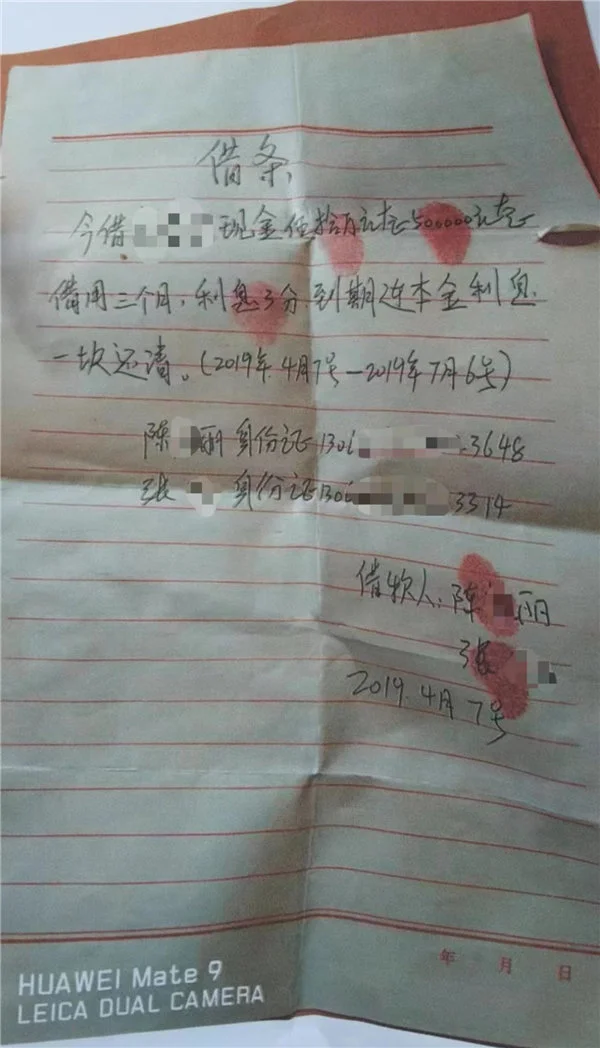 借条
今借 现金伍拾万元整500000元整
借用三个月,利息3分到期连本金利息
一块还清。(2019年4月7号—2019年7月6号)
陈 丽身份证130 3648
张 身份证130 3314
借款人:陈 丽
张
2019.4月7号
年 月 日
HUAWEI Mate 9
LEICA DUAL CAMERA